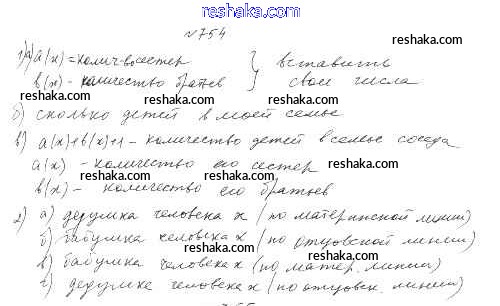 www.reshaka.com
№754
1) а) a(x) = колич-во сестер } вставить
b(x) - количество братьев } свои числа
б) сколько детей в моей семье
в) a(x)+b(x)+1 - количество детей в семье соседа
a(x) - количество его сестер
b(x) - количество его братьев
2) а) дедушка человека x (по материнской линии)
б) бабушка человека x (по отцовской линии)
в) бабушка человека x (по матер. линии)
г) дедушка человека x (по отцовск. линии)
reshaka.com
reshaka.com
reshaka.com
reshaka.com
reshaka.com
reshaka.com
reshaka.com
reshaka.com
reshaka.com